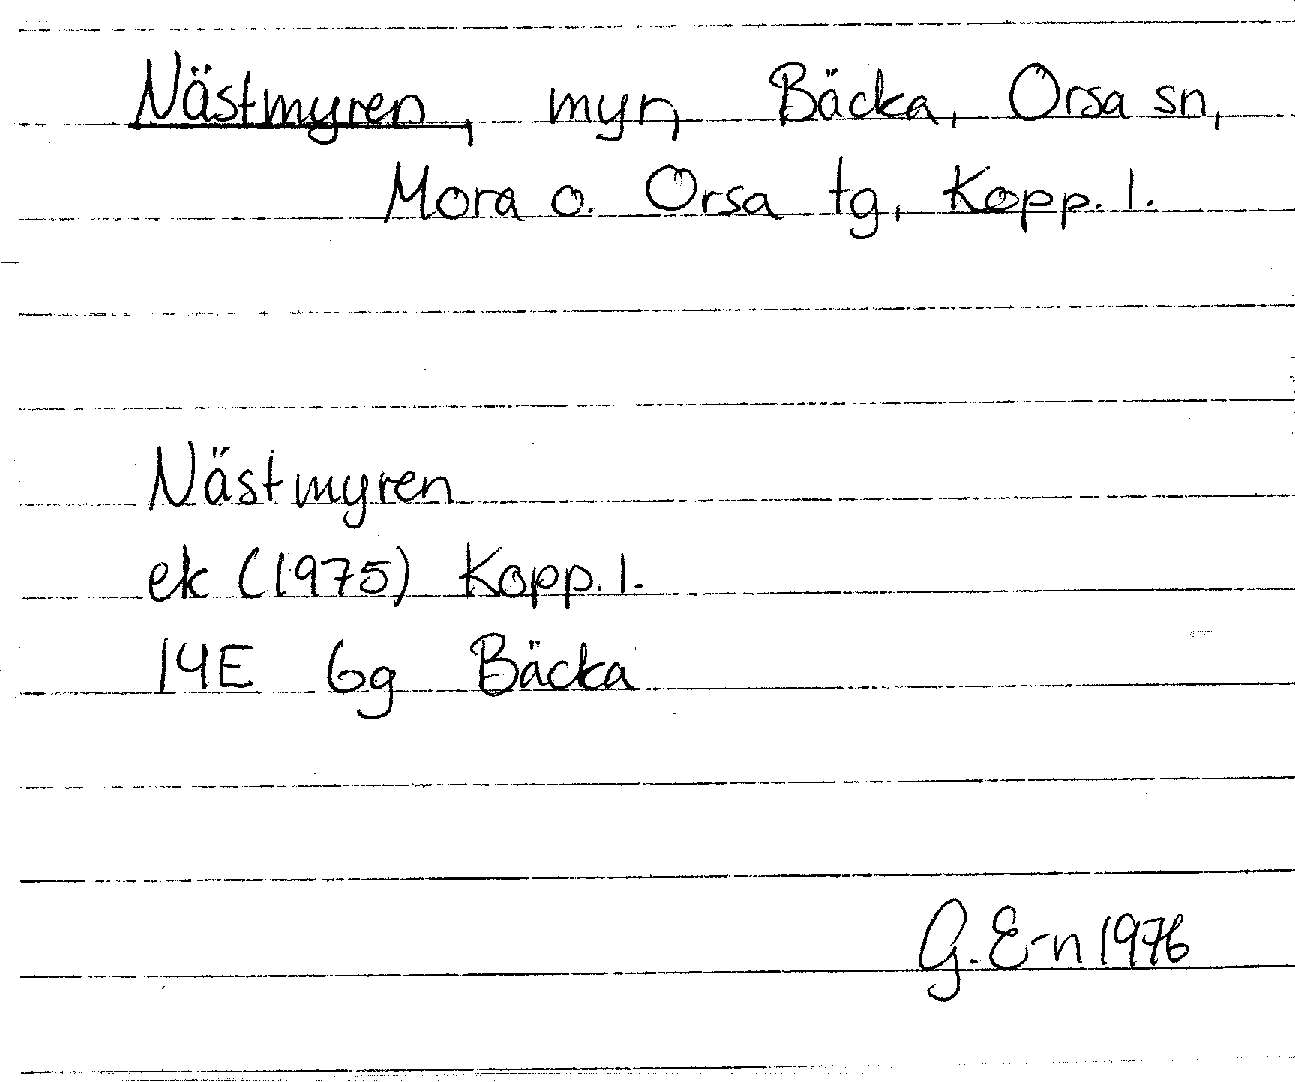 Nästmyren, myr, Bäcka, Orsa sn,
Mora o. Orsa tg, Kopp. l.
Nästmyren
ek (1975) Kopp. l.
14E 6g Bäcka
G. E-n 1976